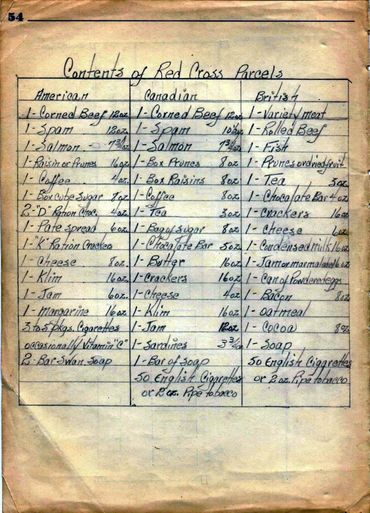 54
Contents of Red Cross Parcels
American Canadian British
1-Corned Beef 12oz. 1-Corned Beef 12oz 1-Variety meat
1-Spam 12oz. 1-Spam 1-Rolled Beef
1-Salmon 1-Salmon 1-Fish
1-Raisin or Prunes 16oz 1-Box Prunes 8oz 1-Prunes or dried fruit
1-Coffee 4oz. 1-Box Raisins 8oz 1-Tea
1-Box Cube Sugar 8oz 1-Coffee 8oz 1-Chocolate Bar 4oz
2-"D" Ration Choc. 4oz 1-Tea 3oz 1-Crackers
1-Pate spread 6oz 1-Bag of sugar 8oz 1-Cheese
1-"K" Ration Crackers 1-Chocolate Bar 5oz 1-Condensed Milk 16oz
1-Cheese 8oz 1-Butter 16oz 1-Jam or marmalade 16oz
1-Klim 16oz 1-Crackers 16oz 1-Can of Powdered eggs
1-Jam 6oz. 1-Cheese 4oz 1-Bacon 8oz
1-margarine 16oz 1-Klim 16oz 1-oatmeal
3 to 5 pkgs. Cigarettes 1-Jam 1-Cocoa 8oz
occasionally Vitamin "C" 1-Sardines 1-Soap
2-Bar Swan Soap 1-Bar of Soap 50 English Cigarettes
50 English Cigarettes or 2 oz. Pipe tobacco
or 2 oz. Pipe tobacco